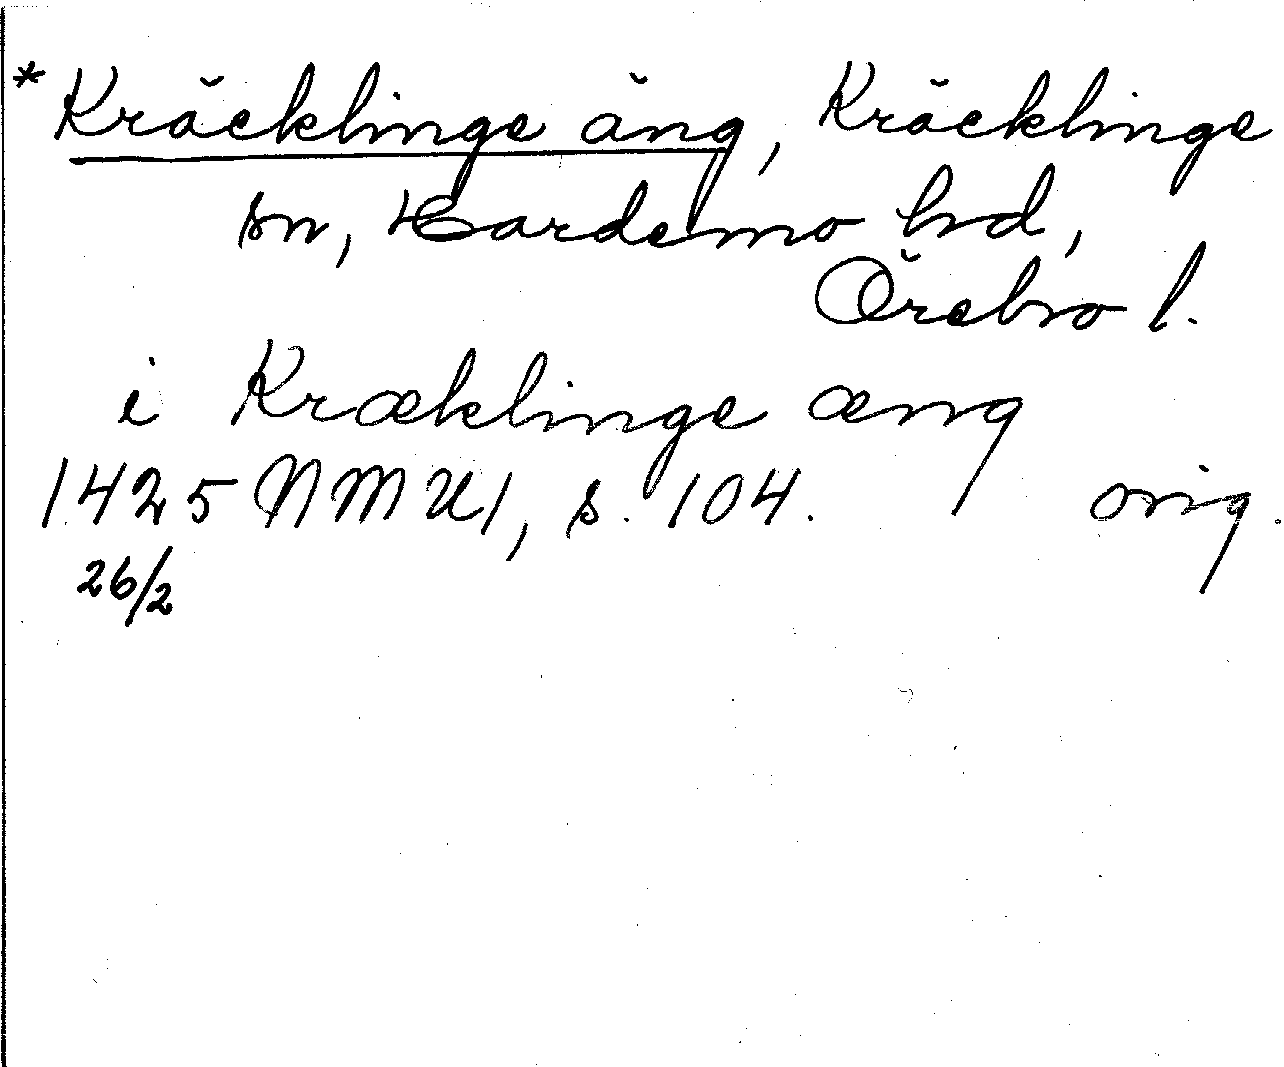 *Kräcklinge äng, Kräcklinge
sn, Hardemo hd,
Örebro l.
i Kræklinge æng
1425 NMU1, s. 104. orig.
26/2